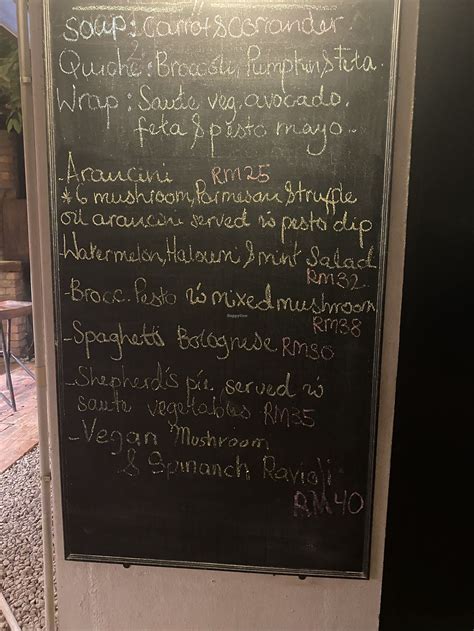 Soup: Carrot & Coriander
Quiche: Broccoli, Pumpkin & Feta.
Wrap: Saute veg, avocado,
feta & pesto mayo.
- Arancini RM25
*6 mushroom, Parmesan & truffle
oil arancini served w pesto dip
- Watermelon, Haloumi & mint Salad
RM32
- Brocc. Pesto w mixed mushroom
RM38
- Spaghetti Bolognese RM30
- Shepherd's pie served w
saute vegetables RM35
- Vegan Mushroom
& Spinanch Ravioli
RM40
HappyCow